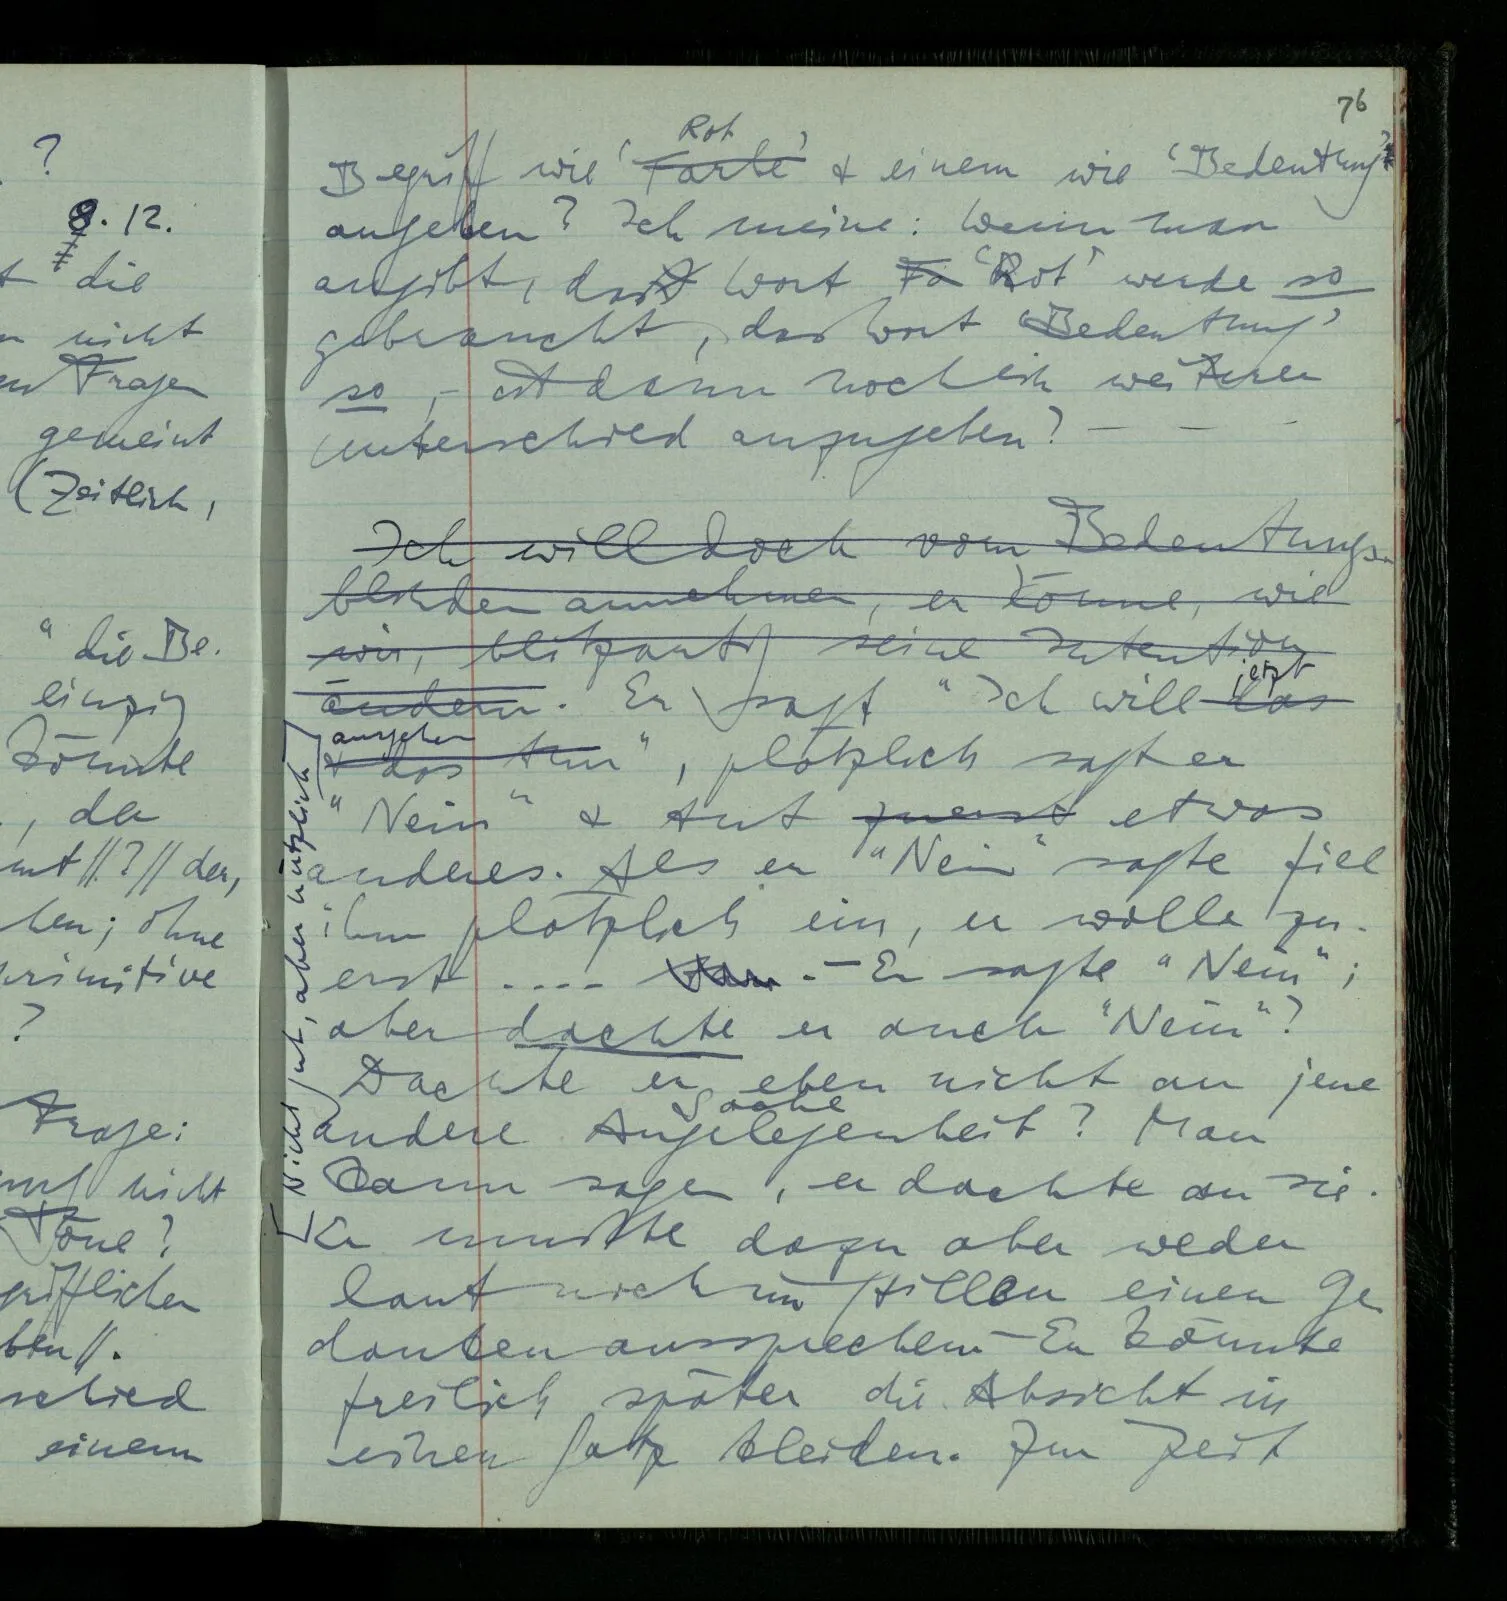 ?
8. 12.
die
nicht
Fragen
gemeint
(Zeitlich,
" die Be-
einzig
könnte
, da
//?// der,
; ohne
primitive
?
Frage:
nicht
Töne?
grifflichen
schied
einem
76
Rot
Begriff wie ‘Farbe’ & einem wie ‘Bedeutung’
angeben? Ich meine: wenn man
angibt, das Wort Fa ‘Rot’ werde so
gebraucht, das Wort ‘Bedeutung’
so, – ist dann noch ein weiterer
Unterschied anzugeben? – – –
Ich will doch vom Bedeutungs-
blinden annehmen, er könne, wie
wir, blitzartig seine Intention
ändern. Er sagt “Ich will das
jetzt
ausgehen
& das tun”, plötzlich sagt er
“Nein” & tut zuerst etwas
anderes. Als er “Nein” sagte fiel
ihm plötzlich ein, er wolle zu-
erst .... – Er sagte “Nein”;
aber dachte er auch “Nein”?
Dachte er eben nicht an jene
Sache
andere Angelegenheit? Man
kann sagen, er dachte an sie.
Er mußte dazu aber weder
laut noch im Stillen einen Ge
danken aussprechen. – Er könnte
freilich später die Absicht in
einen Satz kleiden. Zur Zeit
Nicht gut, aber nützlich